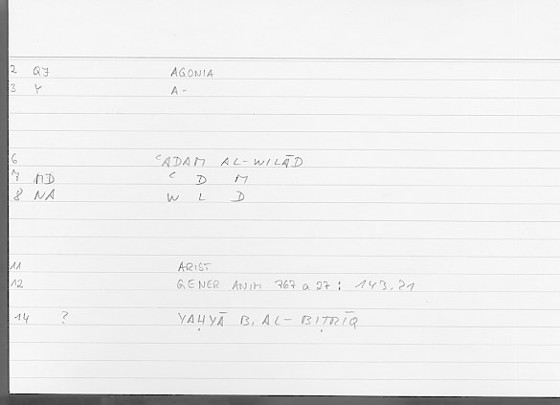 2 QJ AGONIA
3 Y A-
6 ʿADAM AL-WILĀD
7 MD ʿ D M
8 NA W L D
11 ARIST
12 GENER ANIM 767 a 27 : 143.21
14 ? YAḤYĀ B. AL-BIṬRĪQ